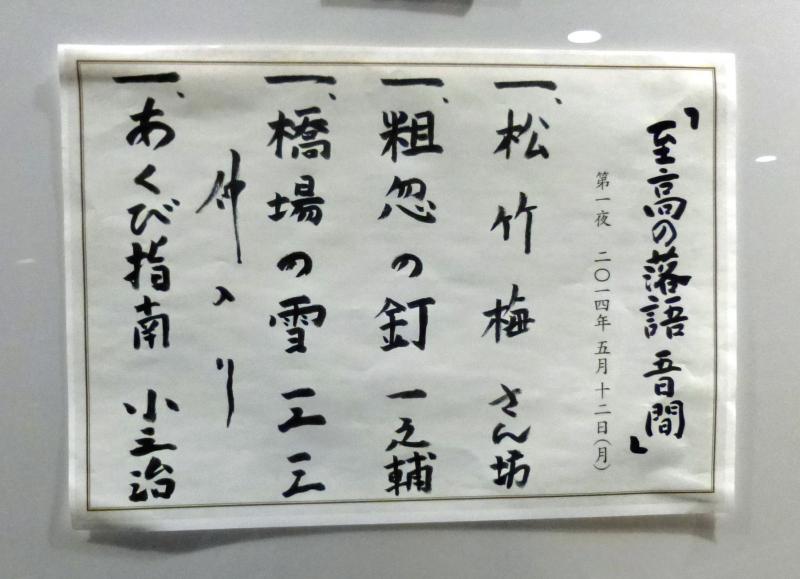 「至高の落語 五日間」
第一夜 二〇一四年 五月 十二日(月)
一、松竹梅 さん坊
一、粗忽の釘 一之輔
一、橋場の雪 三三
仲入り
一、あくび指南 小三治